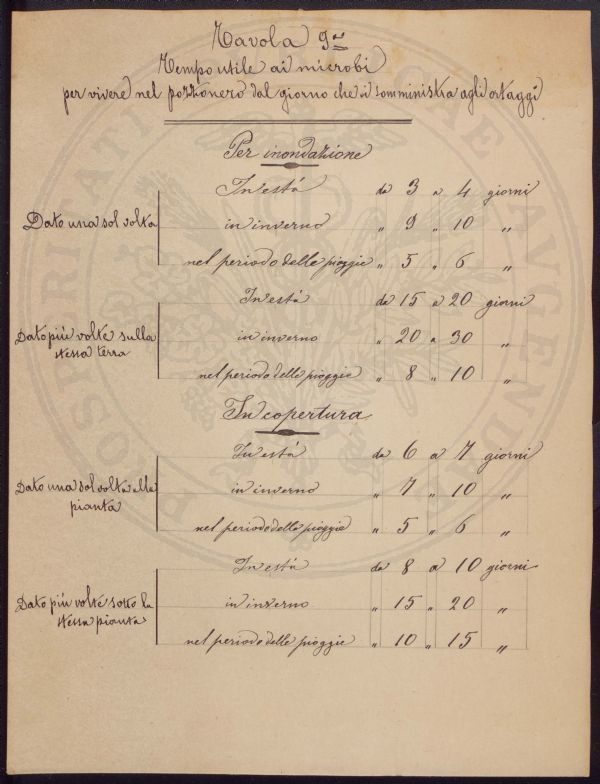 Tavola 9ª
Tempo utile ai microbi
per vivere nel pozzonero dal giorno che si somministra agli ortaggi
Per inondazione
Dato una sol volta
In està da 3 a 4 giorni
in inverno " 9 " 10 "
nel periodo delle pioggie " 5 " 6 "
Dato più volte sulla
stessa terra
In està da 15 a 20 giorni
in inverno " 20 a 30 "
nel periodo delle pioggie " 8 " 10 "
In copertura
Dato una sol volta alla
pianta
In està da 6 a 7 giorni
in inverno " 7 " 10 "
nel periodo delle pioggie " 5 " 6 "
Dato più volte sotto la
stessa pianta
In està da 8 a 10 giorni
in inverno " 15 " 20 "
nel periodo delle pioggie " 10 " 15 "
PROSPERITATI PUBLICAE AUGENDAE